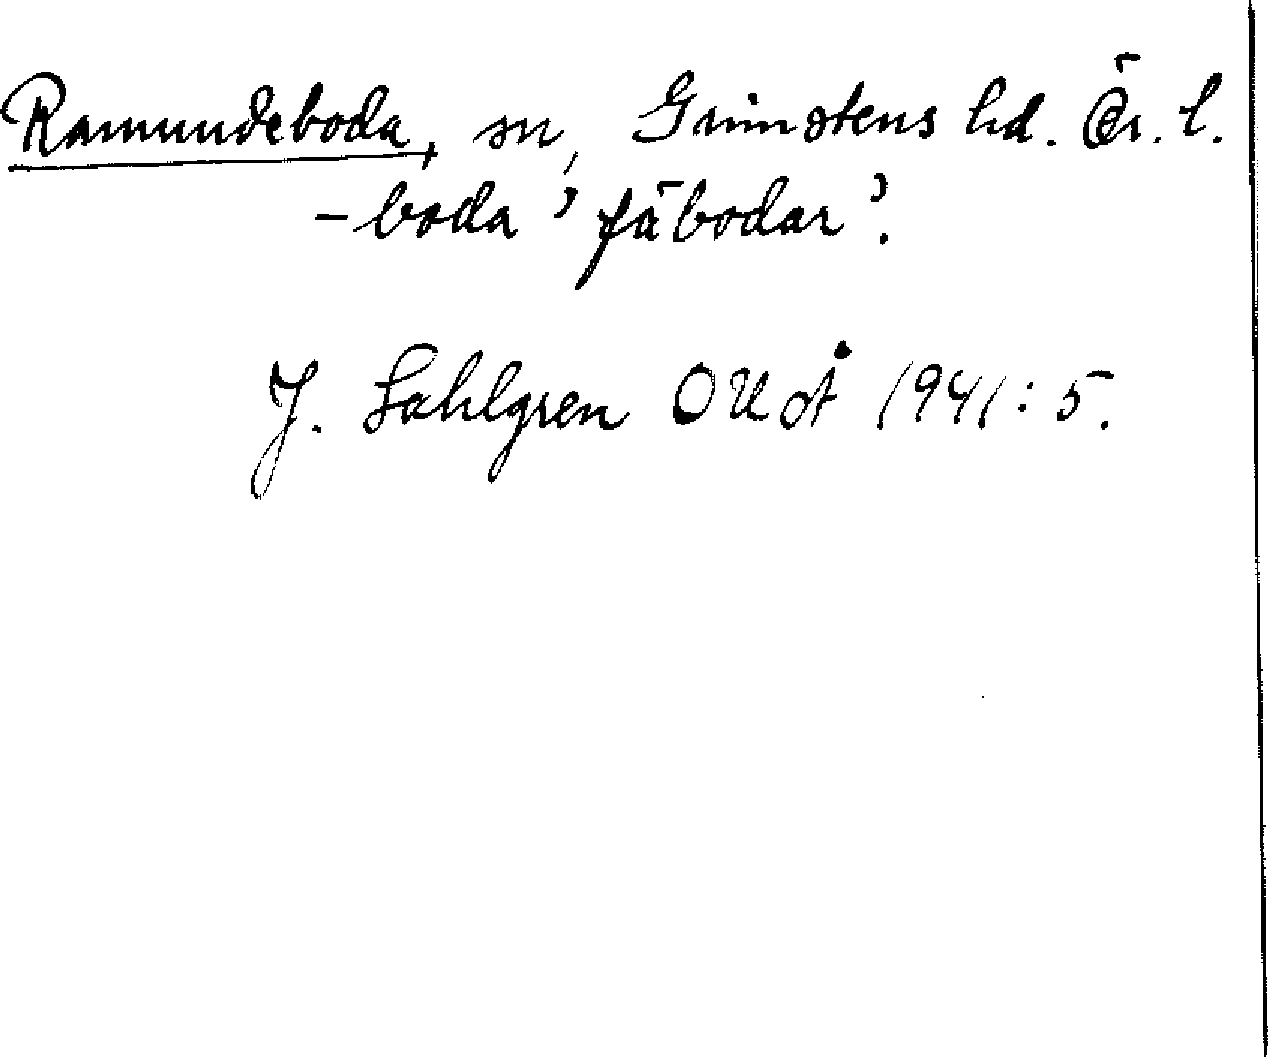 Ramundeboda, sn, Grimstens hd. Ör. l.
-boda ’fäbodar’.
J. Sahlgren OUÅ 1941: 5.